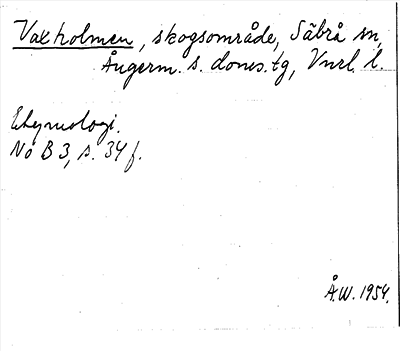 Vaxholmen, skogsområde, Säbrå sn,
Ångerm. s. doms.tg, Vnrl. l.
Etymologi.
No B 3, s. 34 f.
Å.W. 1954.